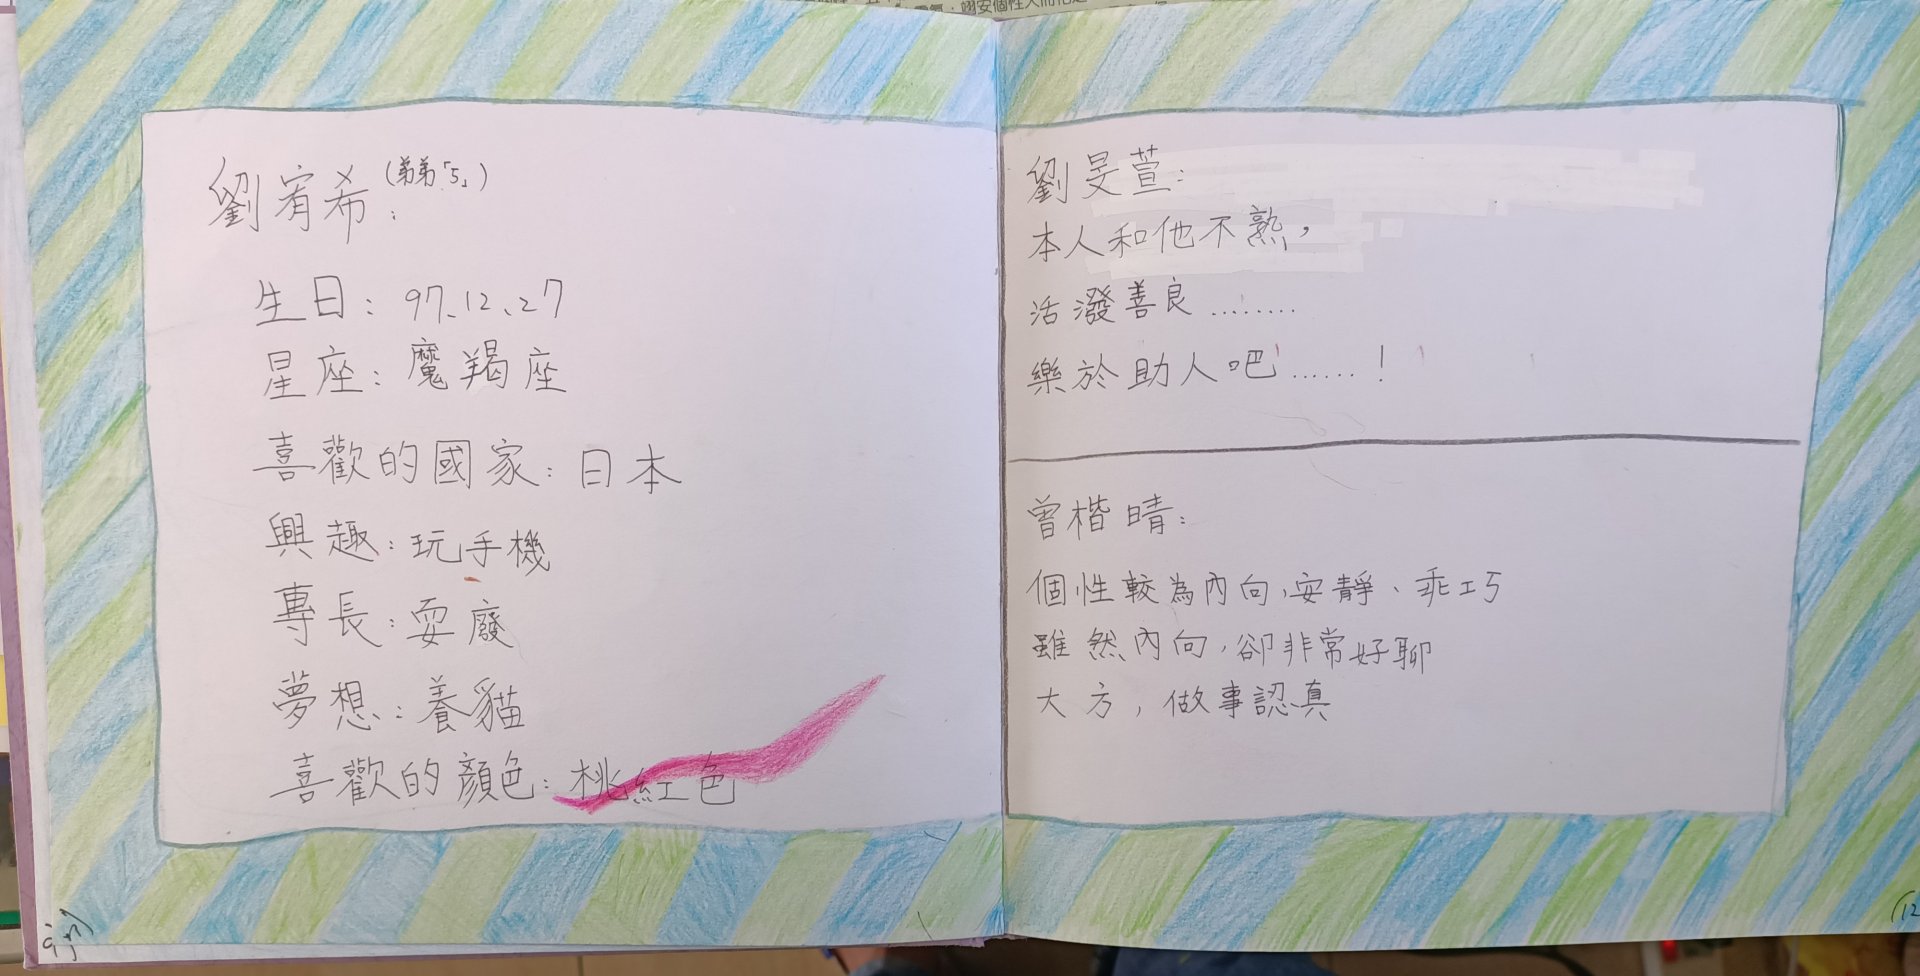 劉宥希：(弟弟「5」)
生日：97、12、27
星座：魔羯座
喜歡的國家：日本
興趣：玩手機
專長：耍廢
夢想：養貓
喜歡的顏色：桃紅色
劉旻萱：
本人和他不熟，
活潑善良........
樂於助人吧......！
曾楷晴：
個性較為內向，安靜、乖巧
雖然內向，卻非常好聊
大方，做事認真
(12